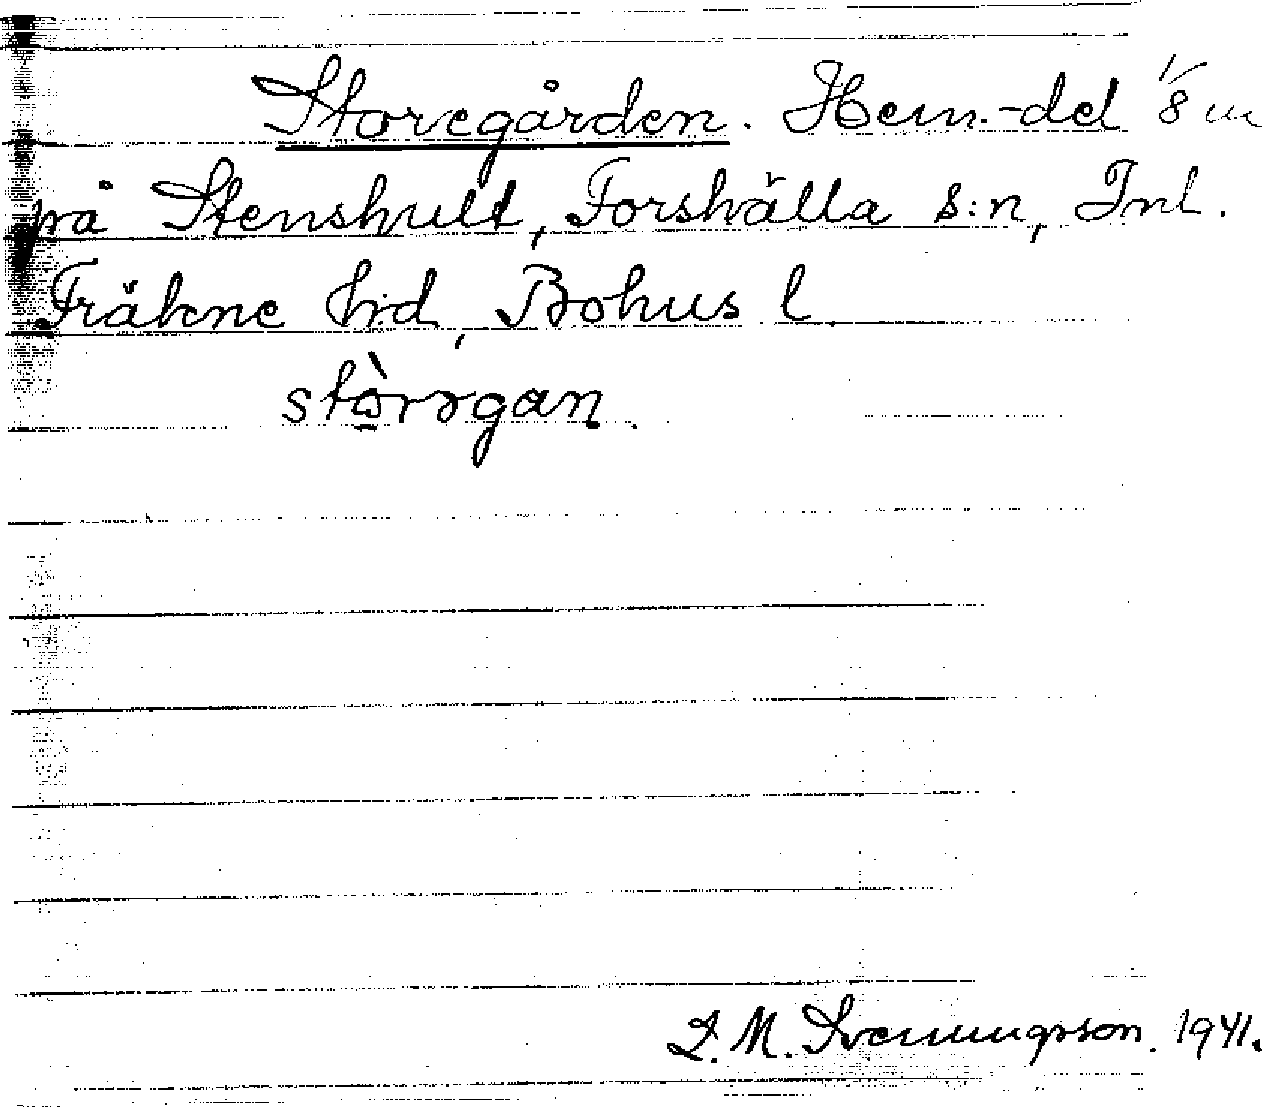 Storegården. Hem.-del 1/8 m
på Stenshult, Forshälla s:n, Inl.
Fräkne hd, Bohus l
stòrrgan.
L. M. Svenungsson. 1941.